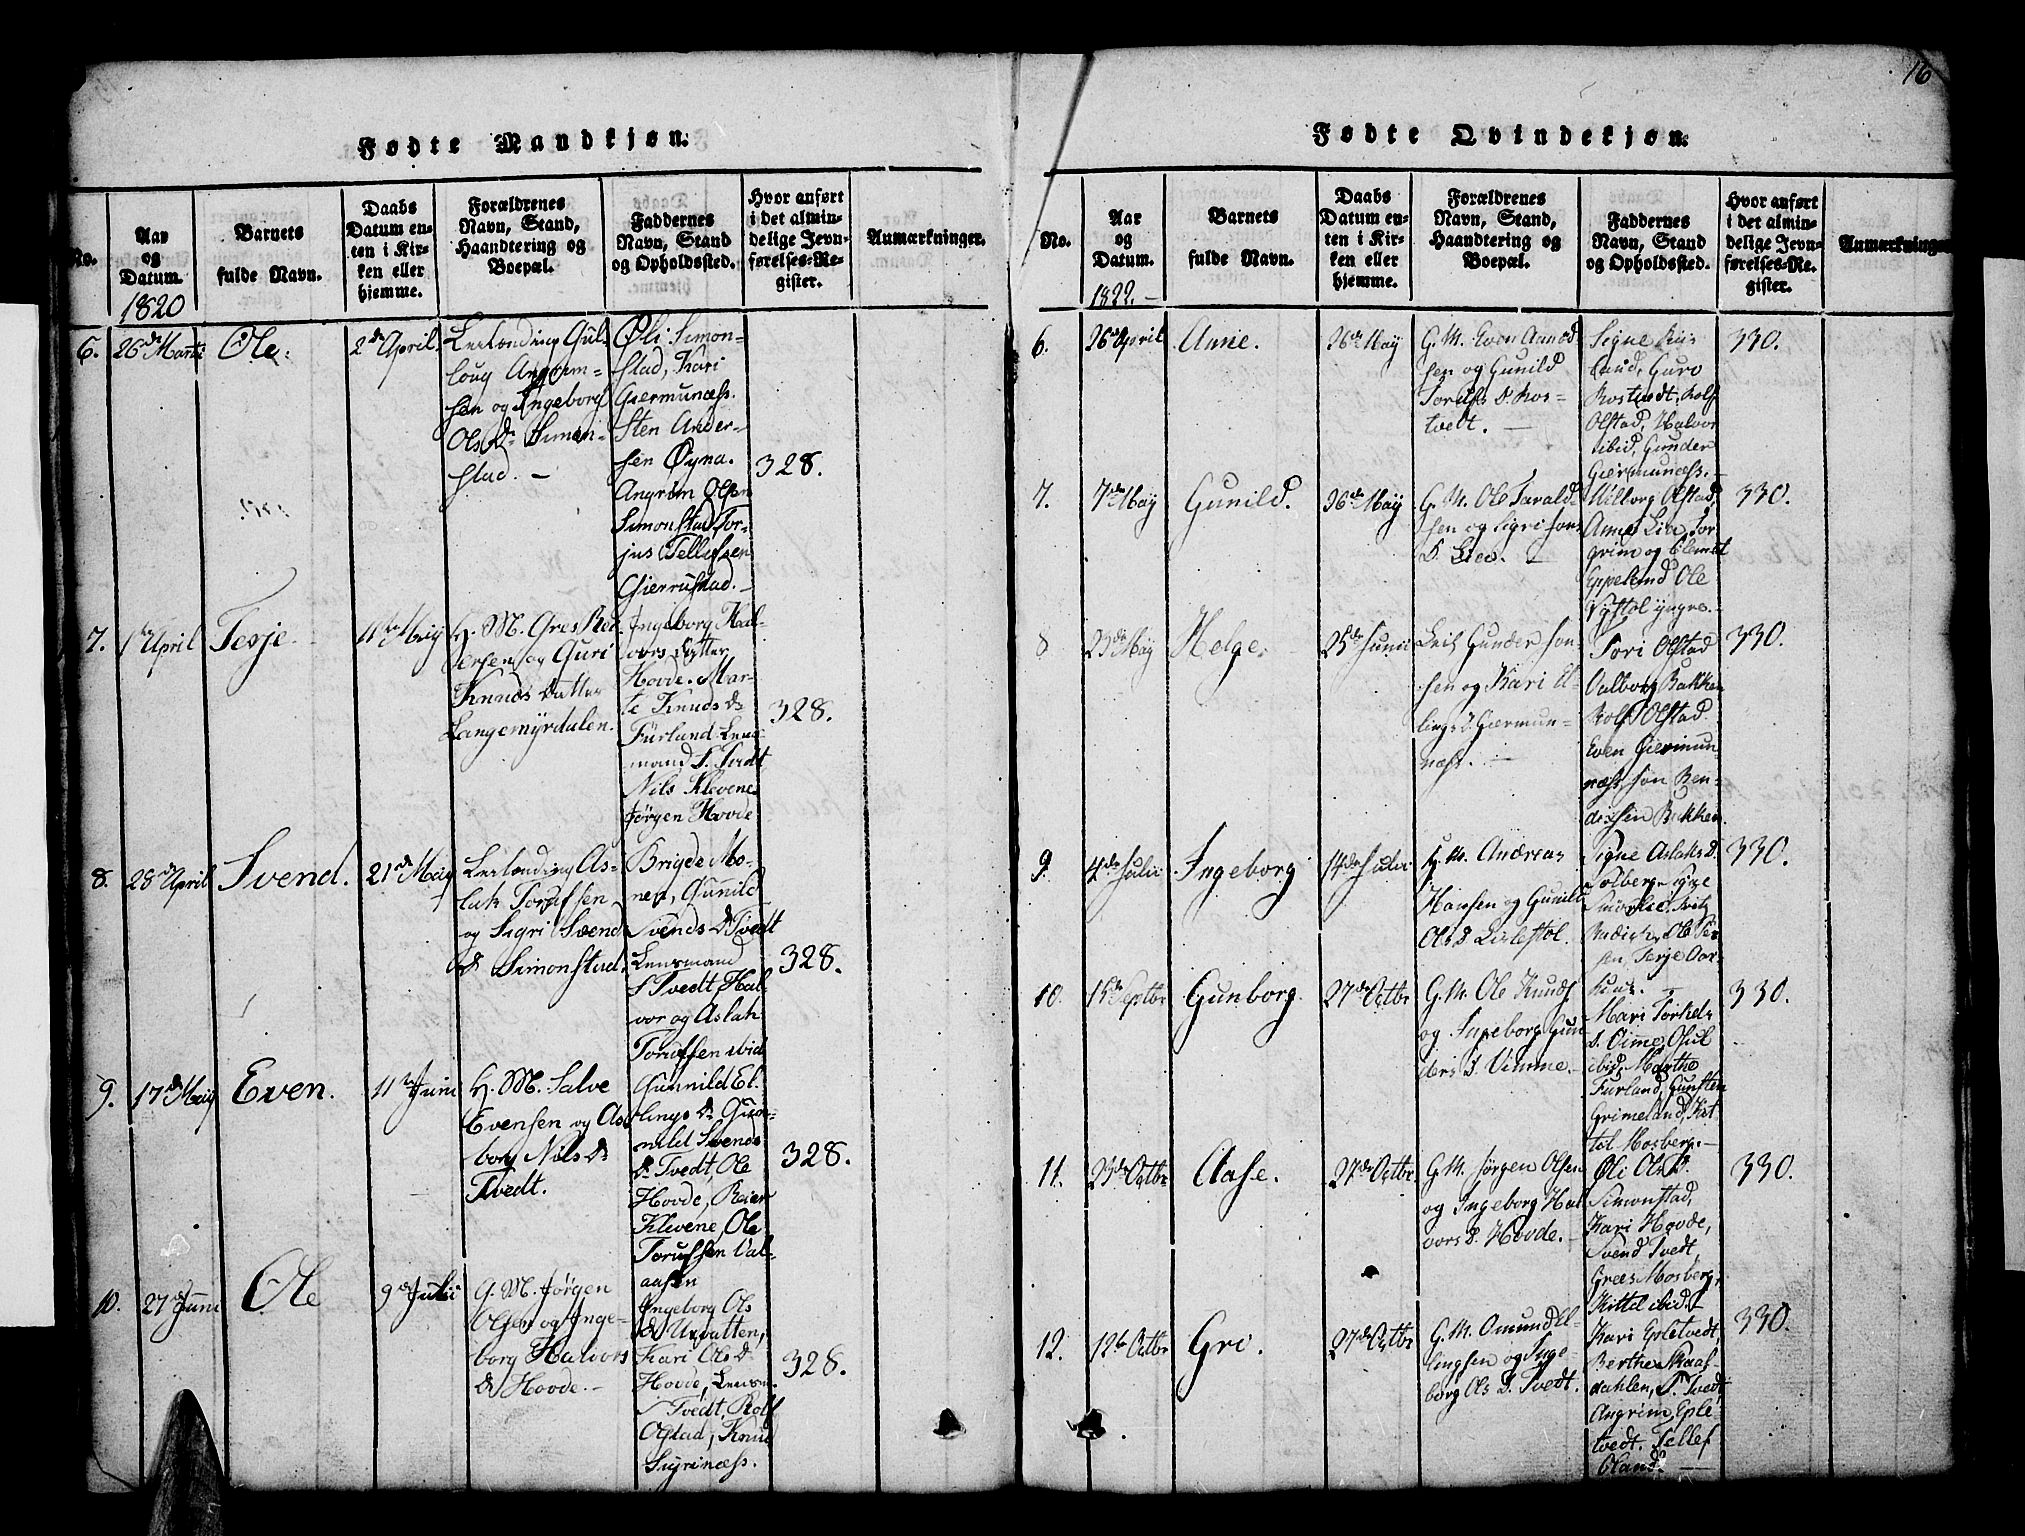 16
Fødte Mandkjøn.
No.
Aar
og
Datum.
1820
Barnets
fulde Navn.
Daabs
Datum en-
ten i Kir-
ken eller
hjemme.
Forældrenes
Navn, Stand,
Haandtering og
Boepæl.
Faddernes
Navn, Stand
og Opholdssted.
Hvor anført
i det almin-
delige Jevn-
førelses-Re-
gister.
Anmærkninger.
6.
26de Marti
Ole.
2de April.
Leilænding Gul-
loug Angrim-
sen og Ingeborg
Ols D. Simon-
stad. -
Øli Simon-
stad, Kari
Giermunæss.
Sten Ander-
sen Øyna.
Angrim Olsen
Simonstad Tor-
jus Tellefsen
Gierrustad. -
328.
7.
1ste April
Terje.
11te Maij
G. M. Gres Rei-
ersen og Guri
Knuds Datter
Langemyrdalen.
Ingeborg Hal-
vors Datter
Hovde. Mar-
te Knuds D.
Furland Lens-
mand S. Tvedt
Nils Klevene
Jørgen Hovde
328.
8.
28de April
Svend.
21de Maij
Leilænding As-
lak Torufsen
og Sigri Svend
D. Simonstad.
Brigde Mo-
nen, Gunild
Svends D. Tvedt
Lensmand
S Tvedt, Hal-
vor og Aslak
Torufsen ibid
328.
9.
17de Maij
Even.
11te Juni
G. M. Salve
Evensen og As-
borg Nils D.
Tvedt.
Gunnild El-
lings D. Gun-
nild Svends
D. Tvedt, Ole
Hovde, Reier
Klevene, Ole
Torufsen Val-
aasen
328.
10.
27de Juni
Ole
9de Juli
G. M. Jørgen
Olsen og Inge-
borg Halvors
D. Hovde. -
Ingeborg Ols
D. Uvatten,
Kari Ols D.
Hovde, Lensm.
S Tvedt, Rolf
Olstad, Knud
Sigrinæss.
328.
Fødte Qvindekjøn.
No.
Aar
og
Datum.
1822. -
Barnets
fulde Navn.
Daabs
Datum en-
ten i Kir-
ken eller
hjemme.
Forældrenes
Navn, Stand,
Haandtering og
Boepæl.
Faddernes
Navn, Stand
og Opholdssted.
Hvor anført
i det almin-
delige Jevn-
førelses-Re-
gister.
Anmærkninger
6.
26de April
Anne.
26de Maij
G. M. Even Aanond
sen og Gunild
Torufs D. Ros-
tvedt. -
Signe
Guro
Rostvedt, Rolf
Olstad, Halvor
ibid, Gunder
Giermunæss. -
330.
7.
7de Maij
Gunild.
26de Maij
G. M. Ole Tarald-
sen og Sigri Jons
D. Lien. -
Vilborg Olstad,
Anne Lien Tor-
grim og Clemet
Eppeland Ole
Vystøl yngre. -
330.
8
23de Maij
Helge.
23de Junii
Leil. Gunder Jon-
sen og Kari El-
lings D. Giermun-
næss. -
Tori Olstad
Valborg Bakken
Rolf Olstad
Even Giermun-
næss, Jon Ben-
dixsen Bakken.
330.
9
4de Julii
Ingeborg
14de Julii
G. M. Andreas
Hansen og Gunild
Ols D. Lislestøl.
Signe Aslaks D.
Solberg Signe
Ole Ter-
sen, Terje Aar-
330.
10.
15de Septbr
Gunborg.
27de Octbr
G. M. Ole Knuds.
og Ingeborg Gun
ders D. Vimme. -
Mari Torkels
D. Vimme, Osul
ibid, Marthe
Furland, Gunsten
Grimeland, Kit-
tel Mosberg. -
330.
11.
23de Octbr
Aase.
27de Octbr
G. M. Jørgen Olsen
og Ingeborg Hal
vors D. Hovde. -
Øli Ols D.
Simonstad,
Kari Hovde,
Svend Tvedt,
Grees Mosberg,
Kittel ibid. -
330.
12.
12te Octbr
Gri.
27de Octbr
G. M. Omund El-
lingsen og Inge-
borg Ols D. Tvedt.
Kari Epletvedt,
Berthe Skaaf-
dahlen, S. Tvedt
Angrim Eple-
tvedt. Tellef
Oland. -
330.